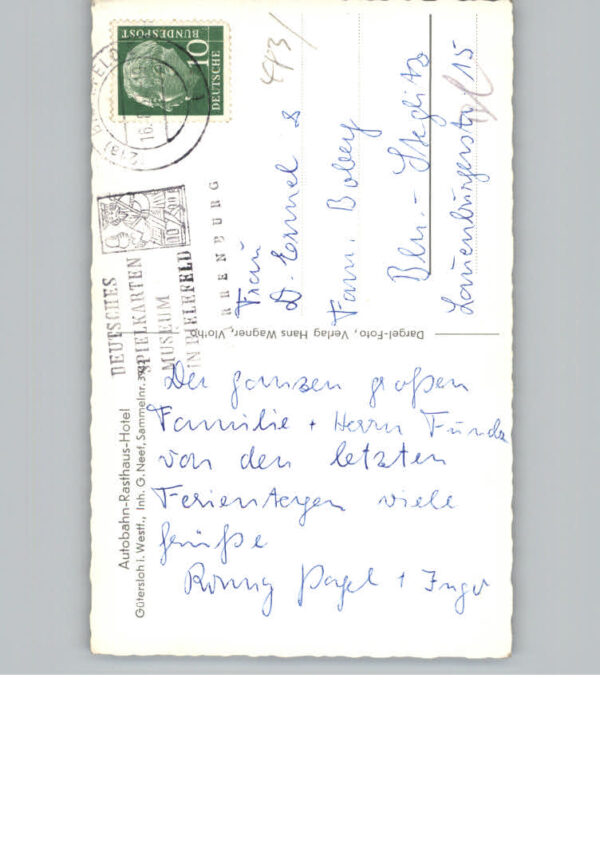 DEUTSCHE
BUNDESPOST
10
DEUTSCHES
SPIELKARTEN
MUSEUM
IN BIELEFELD
Autobahn-Rasthaus-Hotel
Gütersloh i. Westf., Inh. G. Neef, Sammelnr.
Dargel-Foto, Verlag Hans Wagner, Vlotho
Frau
Fam. Bobey
Bln.-Steglitz
Lauenburgerstr. 15
Der ganzen großen
Familie + Herrn Funda
von den letzten
Ferientagen viele
Grüße
+ Ingo